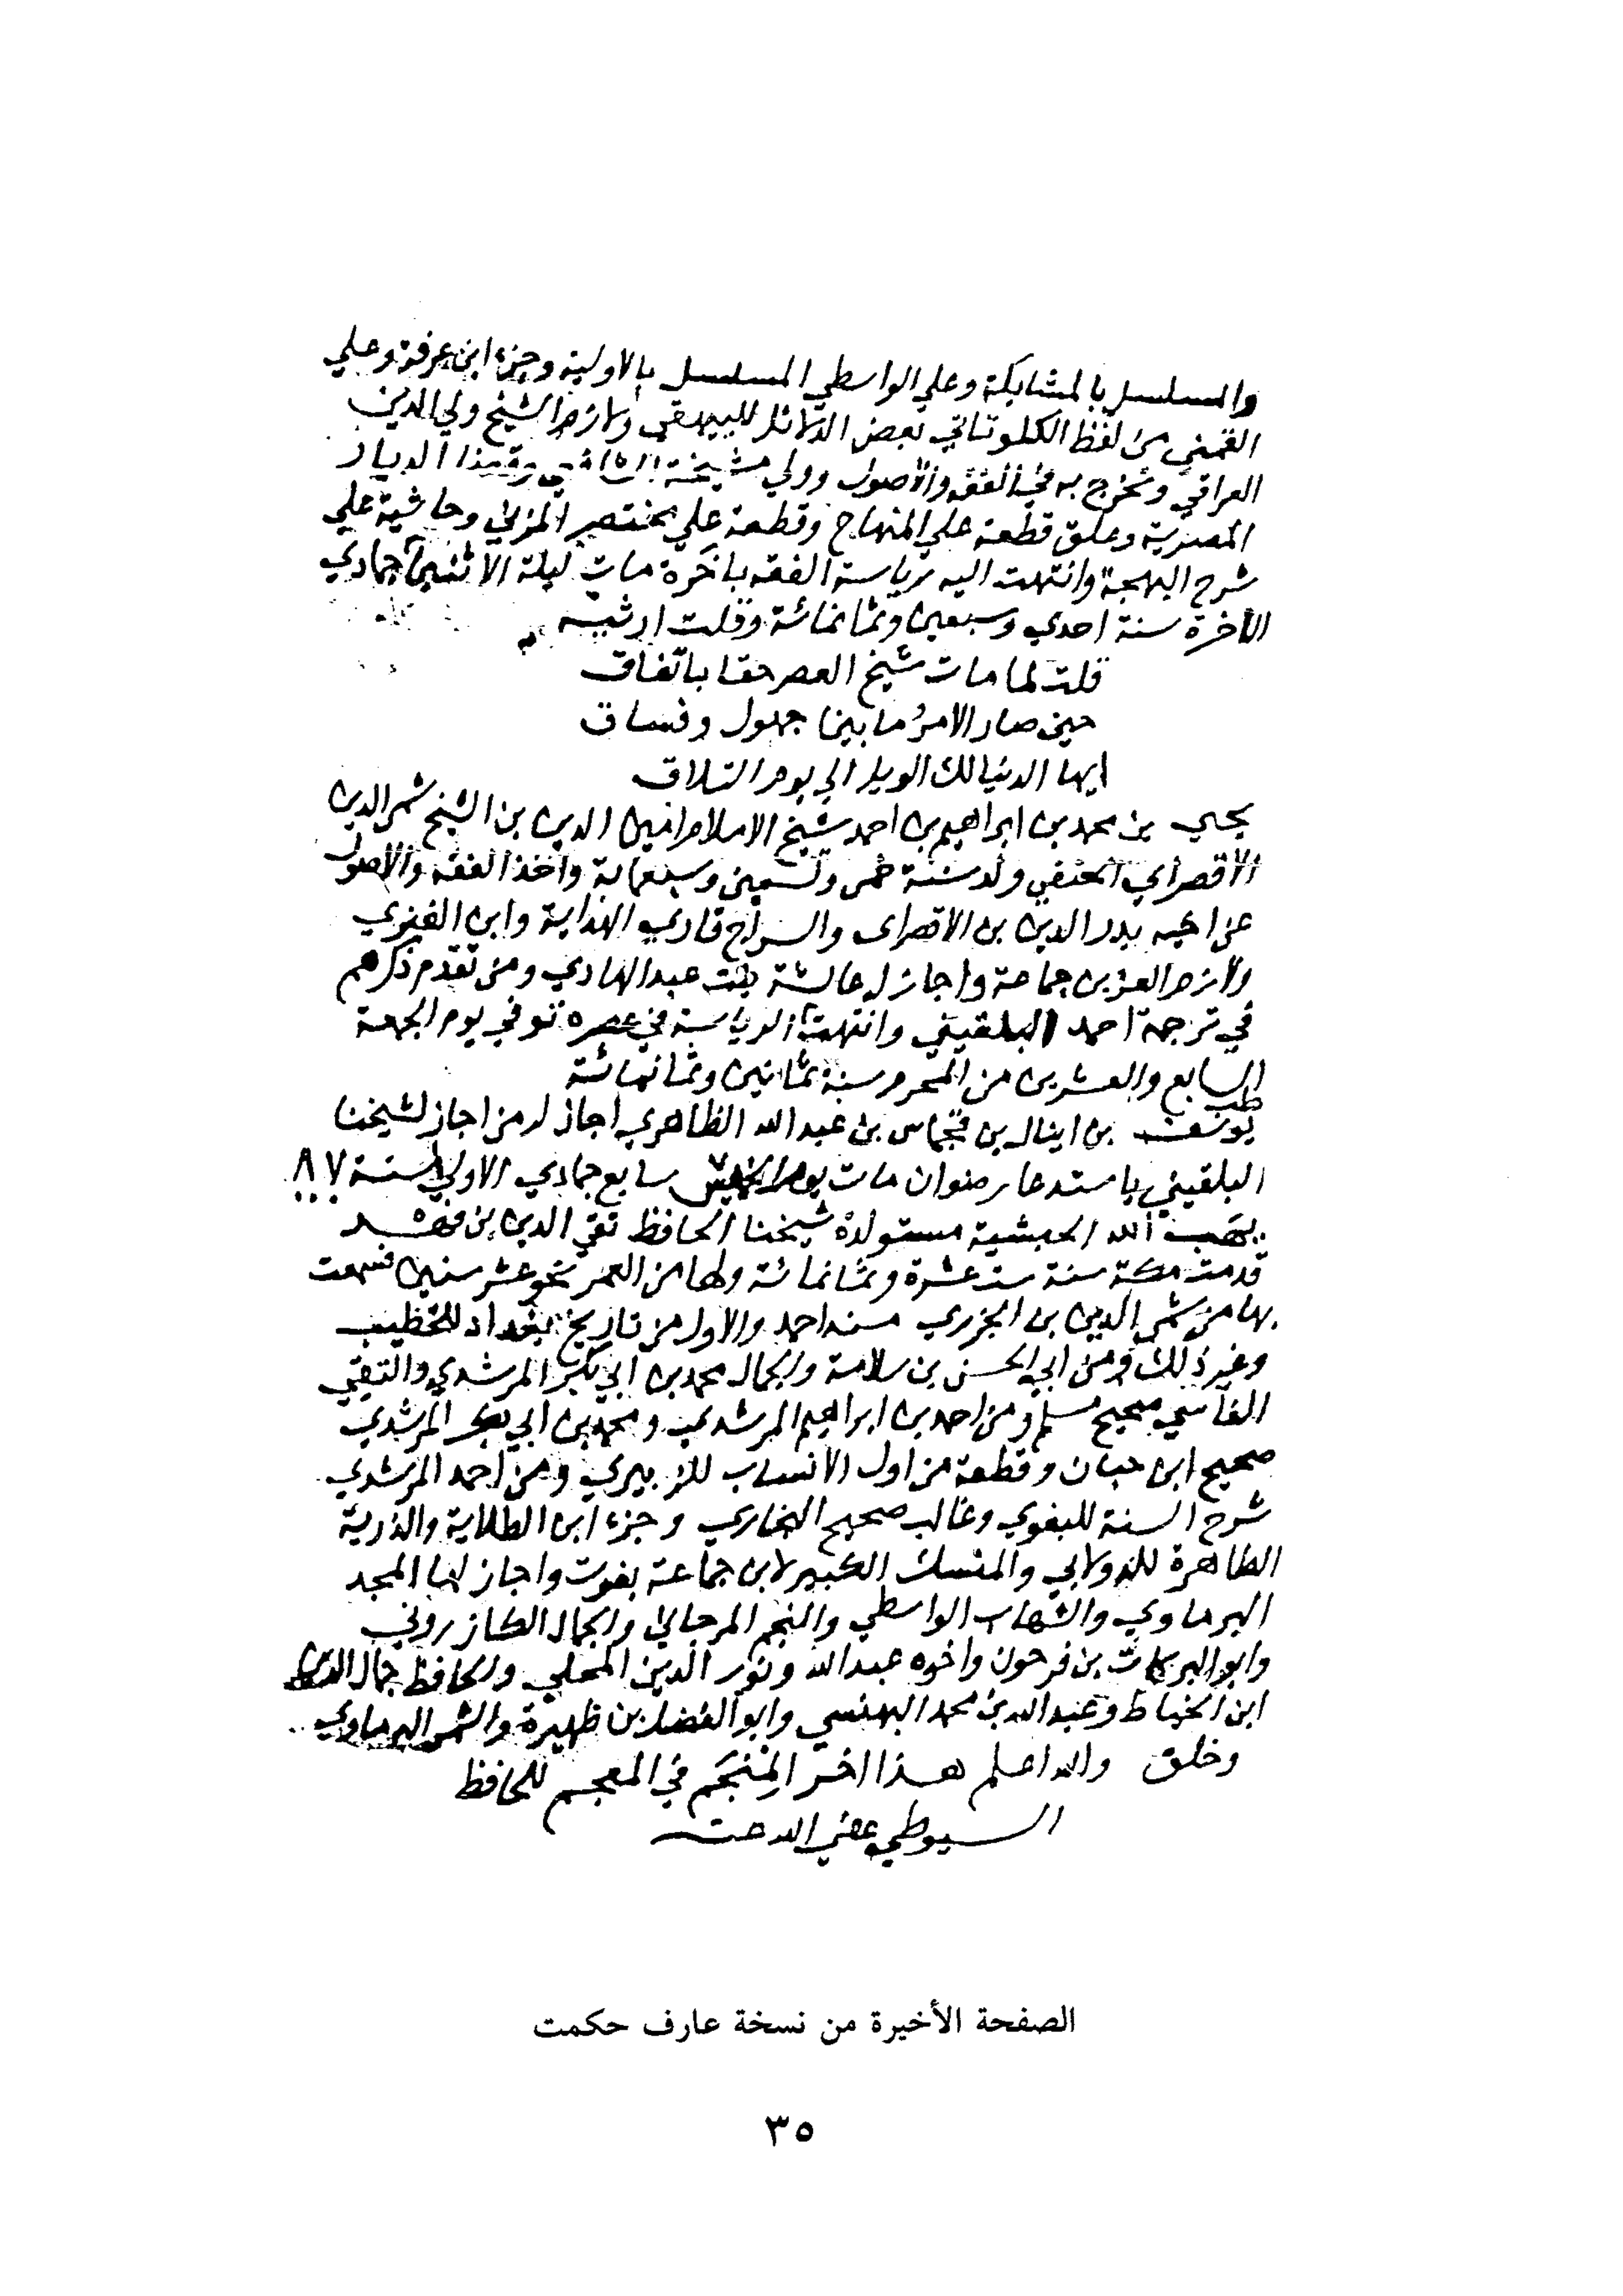 والمسلسل بالمشابكة وعلي الواسطي المسلسل بالاولية وجزء ابن عرفة وعلي
القمني من لفظ الكلوتاتي بعض الدلائل للبيهقي ولازم الشيخ ولي الدين
العراقي وتخرج به في الفقه والأصول وولي مشيخة الديار
المصرية وعلق قطعة علي المنهاج وقطعة علي مختصر المزني وحاشية علي
شرح البهجة وانتهت اليه رياسة الفقه باخرة مات ليلة الاثنين جمادي
الأخرة سنة احدي وسبعين وثمانمائة وقلت ارثيه
قلت لما مات شيخ العصر حقا باتفاق
حين صار الامر ما بين جهول وفساق
ايها الدنيا لك الويل الي يوم التلاق
يحيي بن محمد بن ابراهيم بن احمد شيخ الاسلام امين الدين بن الشيخ شمس الدين
الأقصراي الحنفي ولد سنة خمس وتسعين وسبعماية واخذ الفقه والأصول
عن اخيه بدر الدين بن الاقصراى والسراج قاري الهداية وابن الفنري
ولازم العز بن جماعة واجاز له عائشة بنت عبد الهادي ومن تقدم ذكرهم
في ترجمة احمد البلقيني وانتهت الرياسة في عصره توفي يوم الجمعة
السابع والعشرين من المحرم سنة ثمانين وثمانمائة
يوسف بن اينال بن قجماس بن عبد الله الظاهري اجاز له من اجاز لشيخنا
البلقيني باستدعا رضوان مات يوم الخميس سابع جمادي الاولي سنة
يهب الله الحبشية مستولدة شيخنا الحافظ تقي الدين بن فهد
قدمت مكة سنة ست عشرة وثمانمائة ولها من العمر نحو عشر سنين فسمعت
بها من شمس الدين بن الجزري مسند احمد والاول من تاريخ بغداد للخطيب
وغير ذلك ومن ابي الحسن بن سلامة والجمال محمد بن ابي بكر المرشدي والتقي
الفاسي صحيح مسلم ومن احمد بن ابراهيم المرشدي ومحمد بن ابي بكر المرشدي
صحيح ابن حبان وقطعة من اول الانساب للزبيري ومن احمد المرشدي
شرح السنة للبغوي وغالب صحيح البخاري وجزء ابن الطلاية والذرية
الطاهرة للدولابي والمنسك الكبير لابن جماعة بفوت واجاز لها المجد
البرماوي والشهاب الواسطي والنجم المرجاني والجمال الكازروني
وابو البركات بن فرحون واخوه عبد الله ونور الدين المحلي والحافظ جمال الدين
ابن الخياط وعبد الله بن محمد البهنسي وابو الفضل بن ظهيرة والشمس البرماوي
وخلق والله اعلم هذا اخر المنجم في المعجم للحافظ
السيوطي عفي الله عنه
الصفحة الأخيرة من نسخة عارف حكمت
٣٥